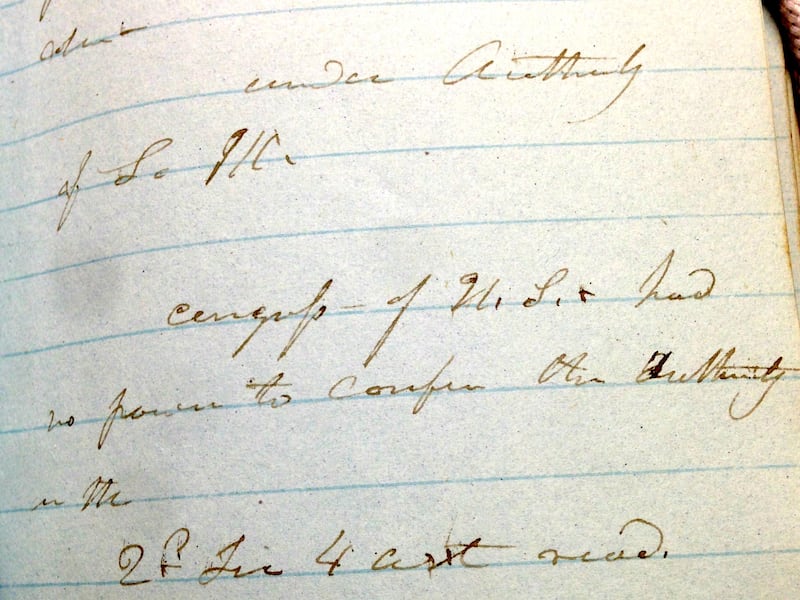 under Authority
of
congress - of U. S. had
no power to confer the Authority
in the
2d Sec 4 art read.